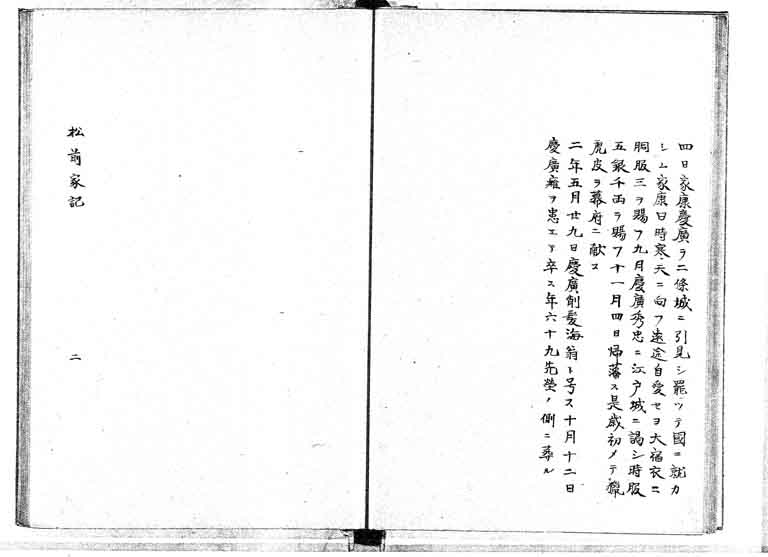 四日家康慶廣ヲ二條城ニ引見シ罷ツテ國ニ就カ
シム家康曰時寒天ニ向フ遠途自愛セヨ大宿衣ニ
胴服三ヲ賜フ九月慶廣秀忠ニ江戸城ニ謁シ時服
五銀千両ヲ賜フ十一月四日帰藩ス是歳初メテ獵
虎皮ヲ幕府ニ献ス
二年五月廿九日慶廣剃髪海翁ト号ス十月十二日
慶廣癰ヲ患エテ卒ス年六十九先塋ノ側ニ葬ル
松前家記
二